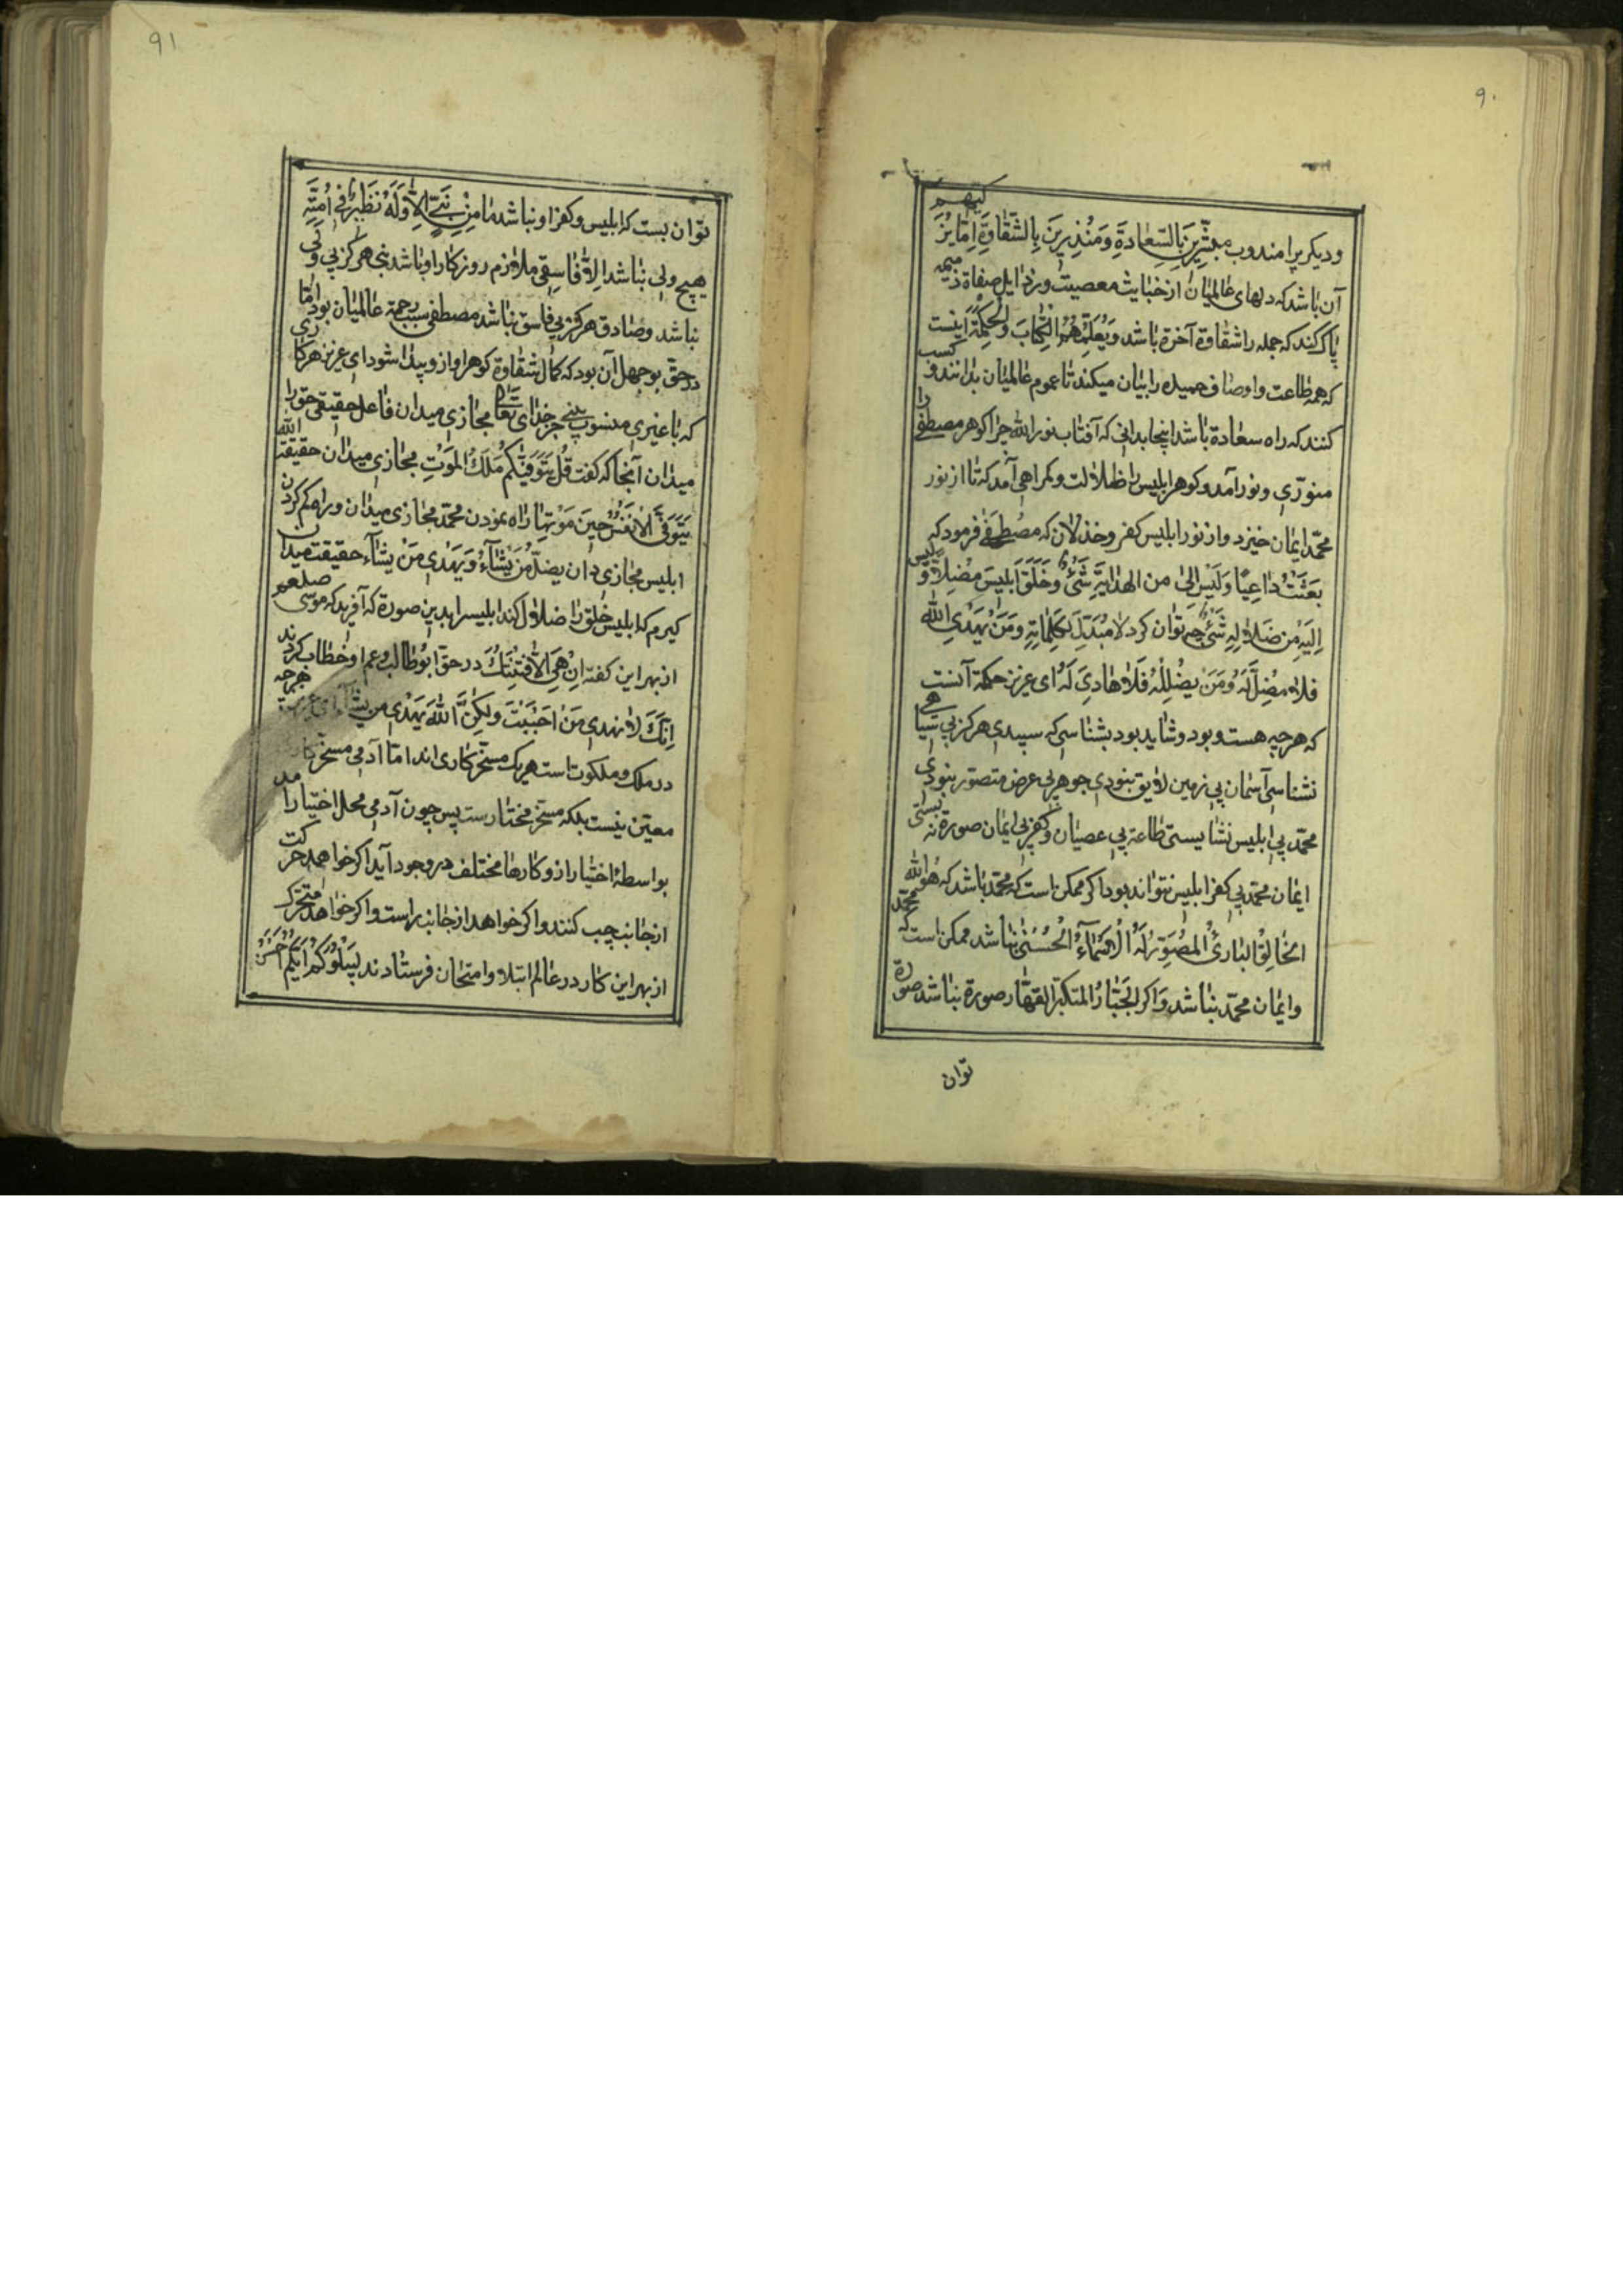 ۹۰
ودیکر یرا مندوب مبشّرین بِالسّعادةِ وَمُنذِرینَ بِالشّقاوةِ اِمّا یُزَکّیهم
آن باشد که دلهای عالمیان از خبایث معصیت ورذایل صفاة ذمیمه
پاک کند که جمله را شقاوة آخرة باشد وَیُعَلّمُهُمُ الکِتابَ وَالحِکمَةَ اینست
که همه طاعت واوصاف حمیده را بیان میکند تا عموم عالمیان بدانند وکسب
کنند که راه سعادة باشد اینجا بدانی که آفتاب نور الله چرا کوهر مصطفی را
منوّری ونور آمد وکوهر ابلیس را ظلالت وکمراهی آمد که تا از نور
محمّد ایمان خیزد واز نور ابلیس کفر وخذلان که مصطفی فرمود که
بَعَثتُ داعِیًا وَلَیسَ اِلیّ من الهدایَةِ شَئٌ وَخَلَقَ اَبلیسَ مُضِلاّ وَلَیس
اِلیَهِ مِن ضَلالِهِ شَئٌ چه توان کرد لا مُبَدِّلَ لِکَلِماتِهِ وَمَن یَهدِی الله
فلا مُضِلَّ لَهُ وَمَن یُضلِلهُ فَلا هادِیَ لَهُ ای عزیز حکمة آنست
که هرچه هست وبود وشاید بود بشناسی که سپیدی هرکز بی سیاهی
نشناسی آسمان بی زمین لایق نبودی جوهر بی عرض متصوّر نبودی
محمّد بی ابلیس نشایستی طاعة بی عصیان وکفر بی ایمان صورة نه بستی
ایمان محمّد بی کفر ابلیس نتواند بود اکر ممکن است که محمّد باشد که هُوَ الله
الخالِقُ البارئُ المُصَوِّرُ لَهُ الاَسماءُ الحُسنی نباشد ممکن است که محمّد
وایمان محمّد نباشد وَاکر الجَبّارُ المتکبّر القهّار صورة نباشد صورة
توان
۹۱
توان بست که ابلیس وکفر او نباشد ما مِن نَبِیٍّ اِلاّ وَلَهُ نَظیرٌ فی اُمّتِه
هیچ ولی نباشد اِلاّ فاسِقی ملازم روزکار او باشد نبی هرکز بی ولی
نباشد وصادق هرکز بی فاسق نباشد مصطفی سبب رحمة عالمیان بود امّا
در حق بوجهل آن بود که کمال شقاوة کوهر او ازو پیدا شود ای عزیز هر کاری
که با غیری منسوب بینی جز خدای تعالی مجازی میدان فاعل حقیقی حق را
میدان آنجا که کفت قُل یَتَوَفّیکُم مَلَکُ المَوتِ مجازی میدان حقیقة الله
یَتَوَفّی الاَنفُسَ حینَ مَوتِها راه نمودن محمّد مجازی میدان وراه کم کردن
ابلیس مجازی دان یضلّ مَن یَشآءُ وَیَهدی مَن یشآء حقیقت میدان
کیرم که ابلیس خلق را ضلال کند ابلیس را بدین صورة که آفرید که موسی صلعم
از بهر این کفت اِن هِیَ اِلاّ فِتنَتُکَ در حق ابوطالب وعم او خطاب کردند
اِنّکَ لا تهدی مَن اَحبَبتَ ولکِنّ اللهَ یَهدی من یشآء ای عزیز هرچه
در ملک وملکوت است هریک مسخّر کاری اند امّا آدمی مسخّر کار
معیّن نیست بلکه مسخّر مختارست پس چون آدمی محل اختیار آمد
بواسطهٔ اختیار ازو کارها مختلف در وجود آید اکر خواهد حرکت
از جانب چپ کنند واکر خواهد از جانب راست واکر خواهد متحرک
از بهر این کار در عالم ابتلا وامتحان فرستادند لِیَبلُوَکُم اَیّکُم اَحسَنُ